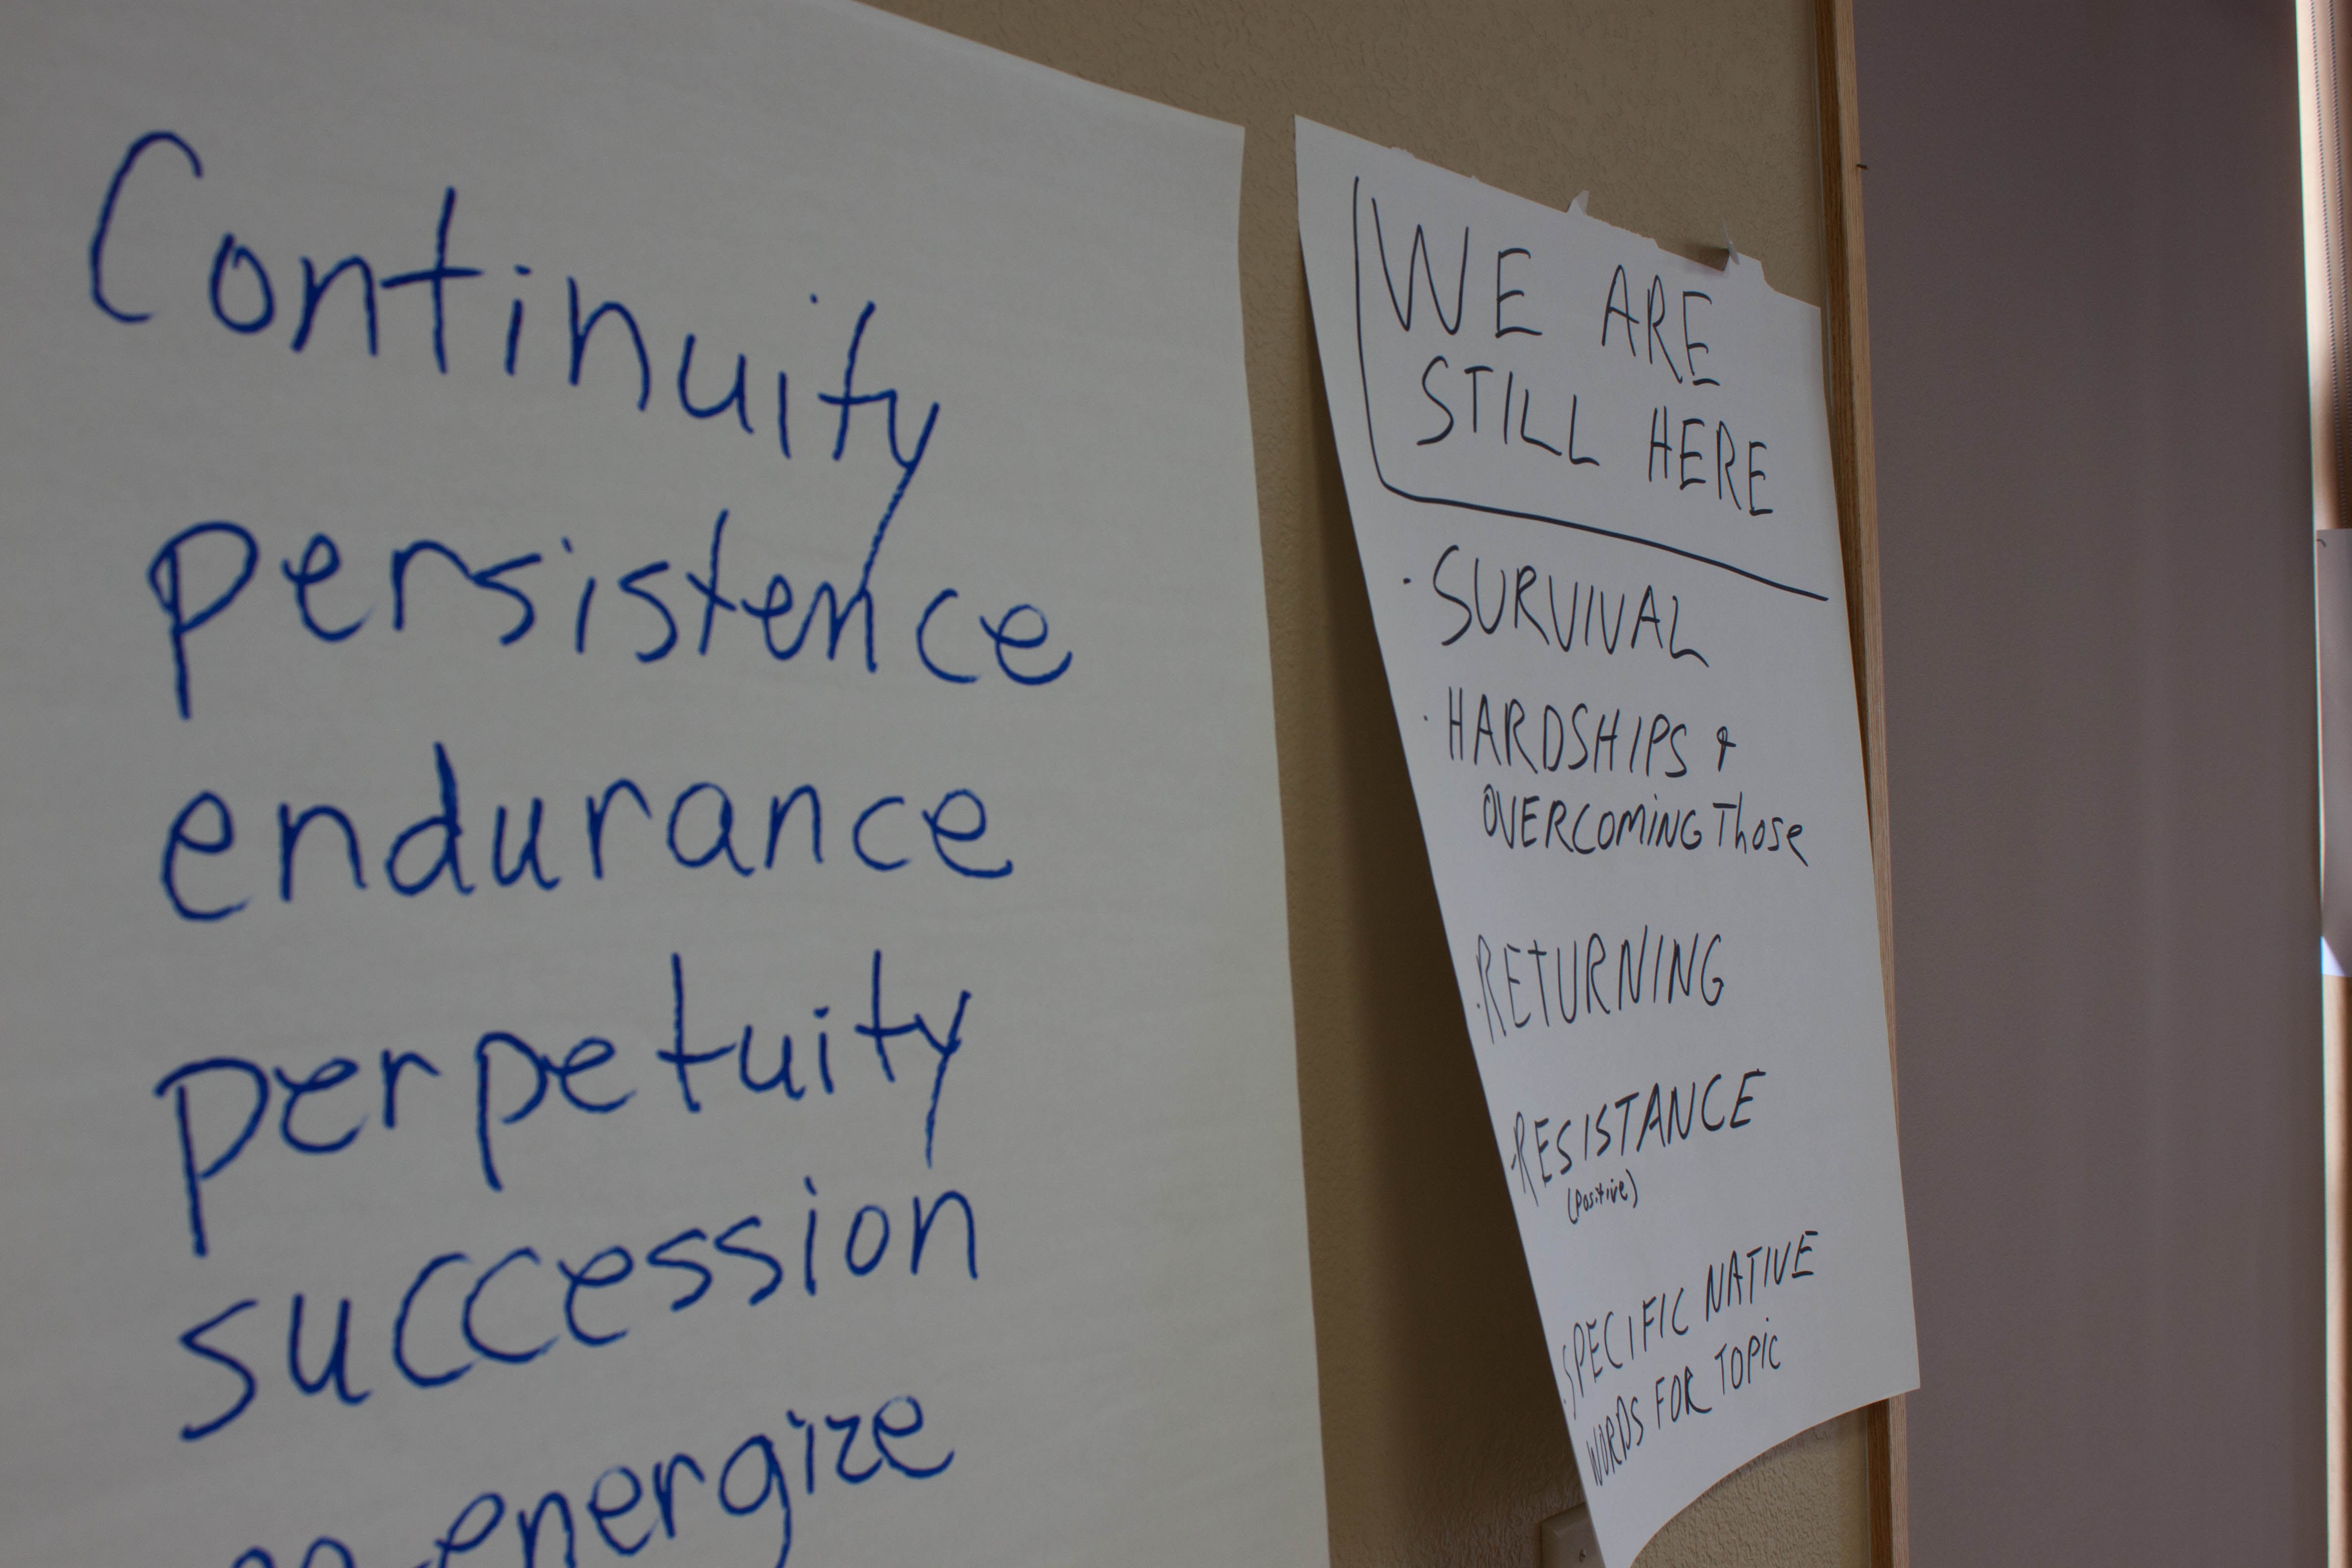 Continuity
persistence
endurance
perpetuity
succession
energize
WE ARE
STILL HERE
· SURVIVAL
· HARDSHIPS &
OVERCOMING Those
· RETURNING
· RESISTANCE
(positive)
· SPECIFIC NATIVE
WORDS FOR TOPIC